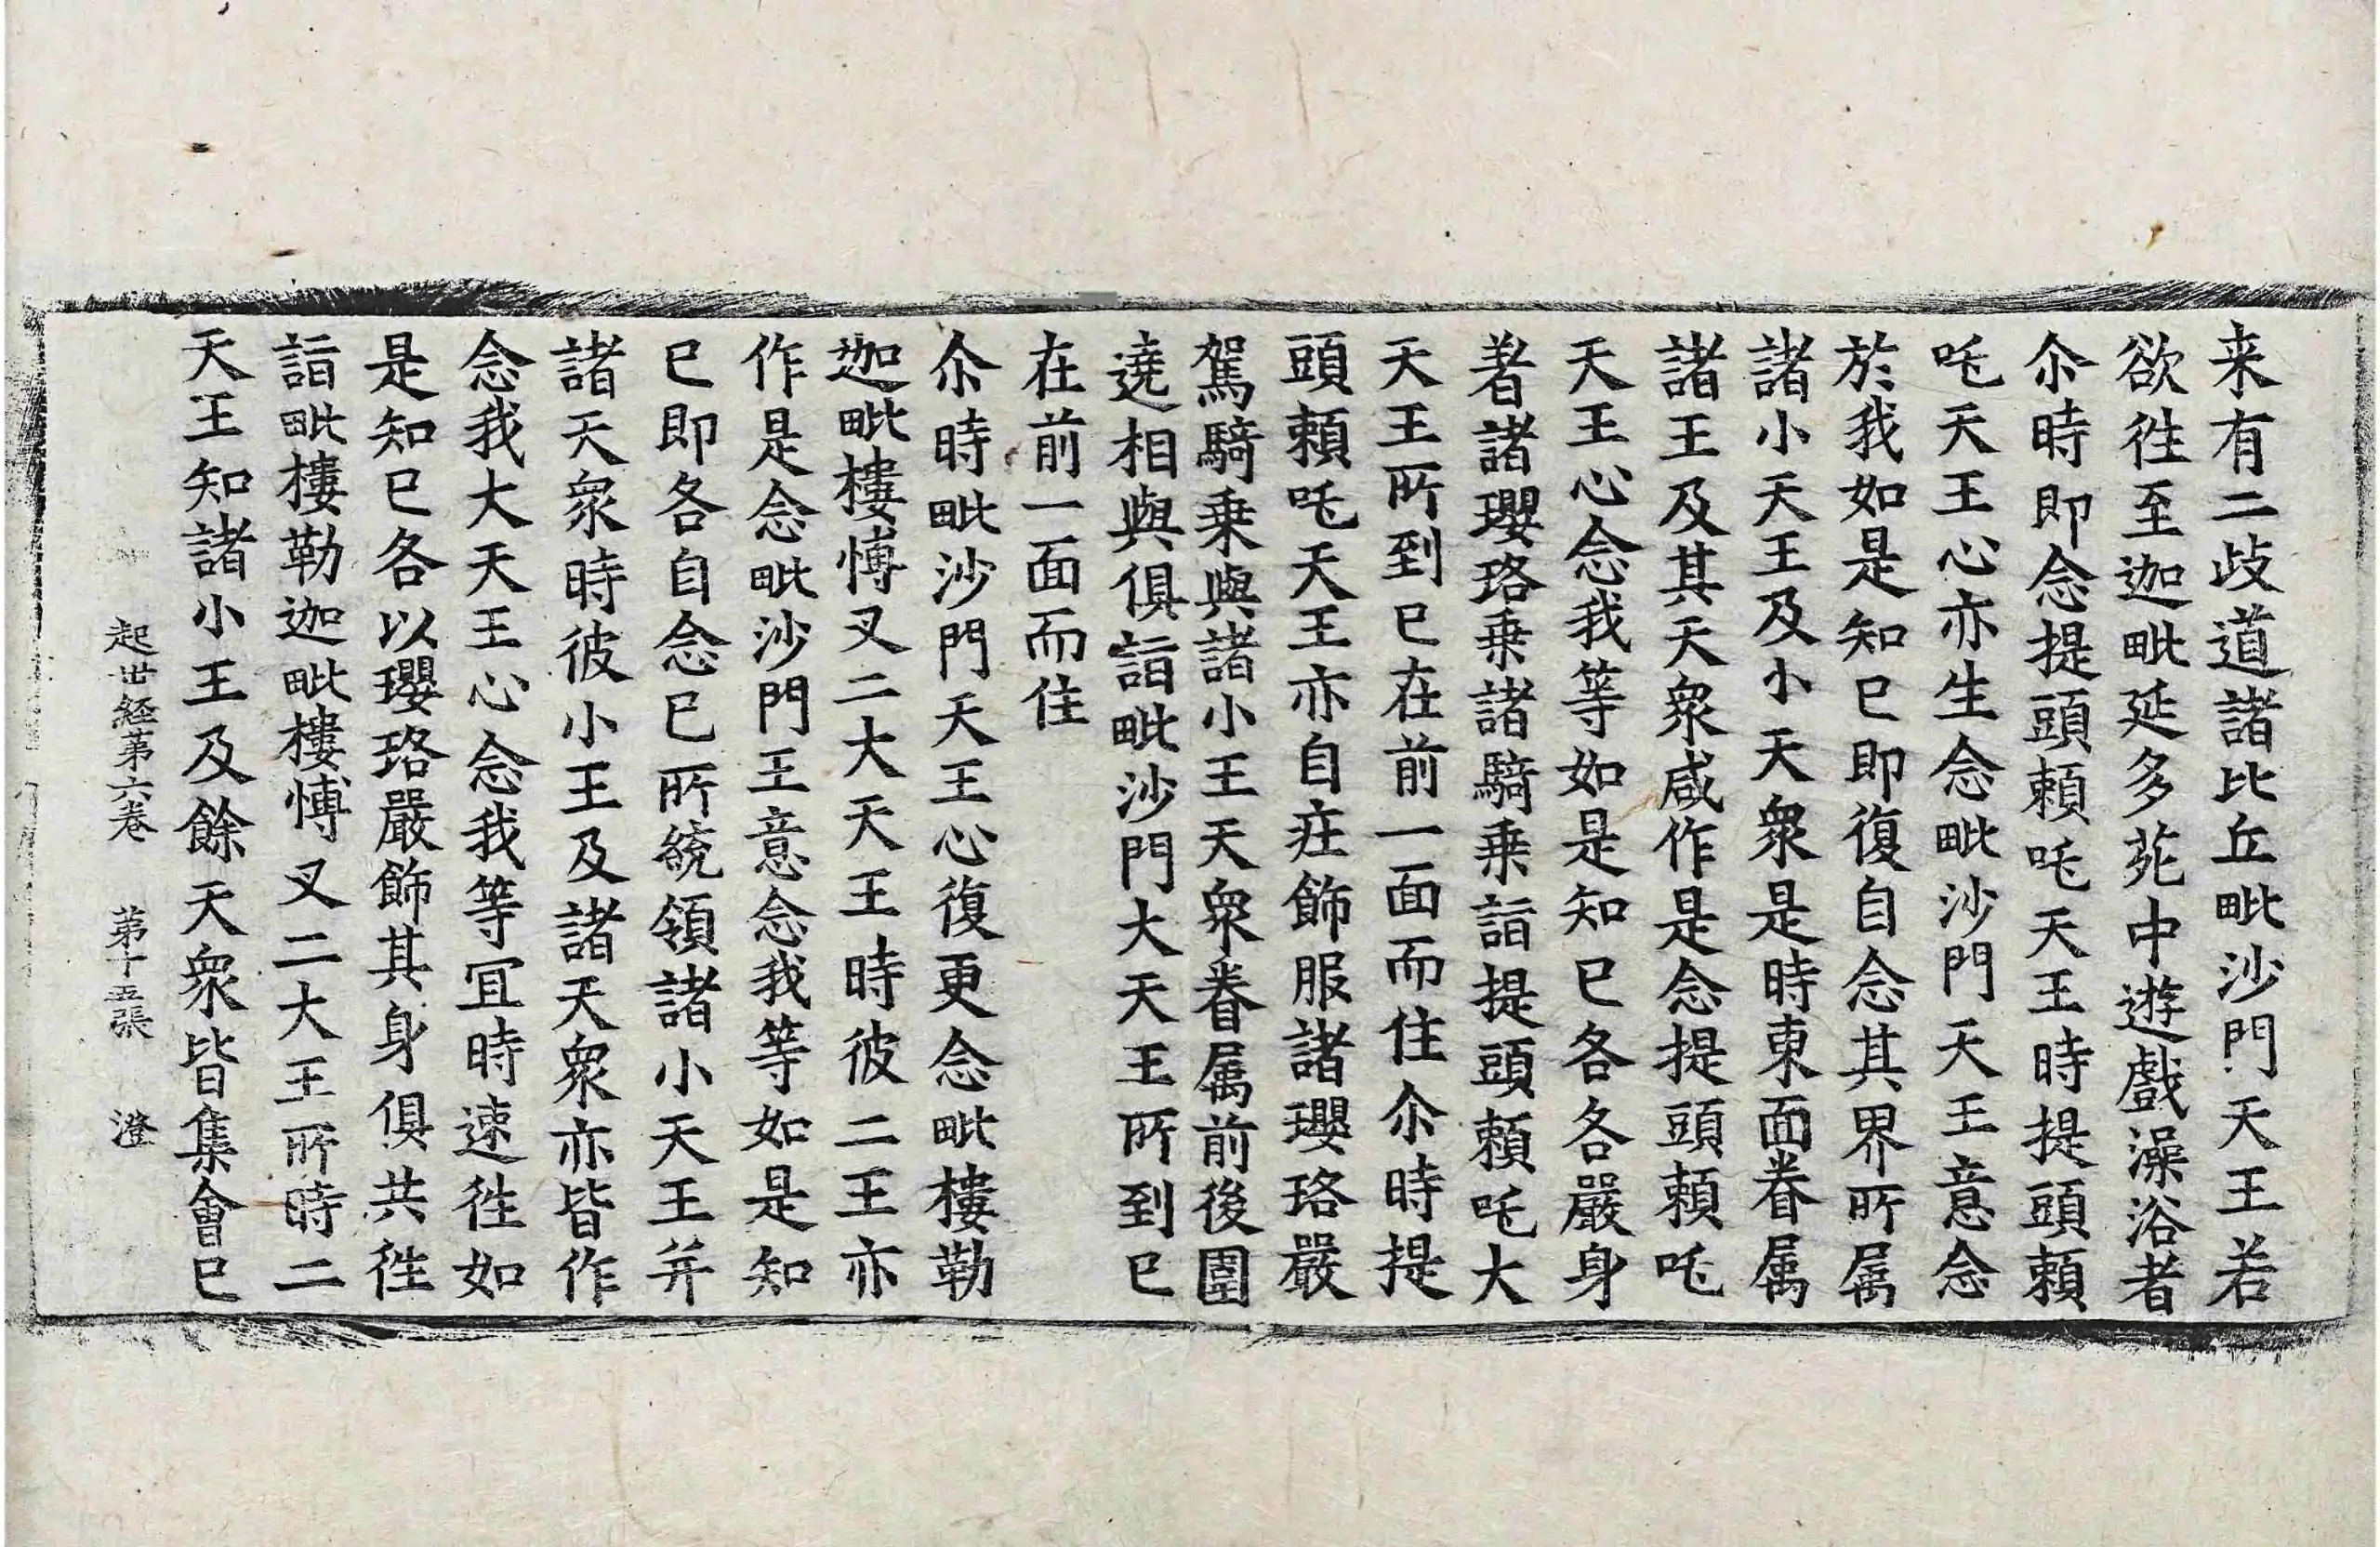 来有二歧道諸比丘毗沙門天王若
欲徃至迦毗延多苑中遊戲澡浴者
尒時即念提頭賴吒天王時提頭賴
吒天王心亦生念毗沙門天王意念
於我如是知已即復自念其界所属
諸小天王及小天衆是時東面眷属
諸王及其天衆咸作是念提頭賴吒
天王心念我等如是知已各各嚴身
著諸瓔珞乗諸騎乗詣提頭賴吒大
天王所到已在前一面而住尒時提
頭賴吒天王亦自疘飾服諸瓔珞嚴
駕騎乗與諸小王天衆眷属前後圍
遶相與俱詣毗沙門大天王所到已
在前一面而住
尒時毗沙門天王心復更念毗樓勒
迦毗樓愽叉二大天王時彼二王亦
作是念毗沙門王意念我等如是知
已即各自念已所統領諸小天王并
諸天衆時彼小王及諸天衆亦皆作
念我大天王心念我等冝時速徃如
是知已各以瓔珞嚴飾其身俱共徃
詣毗樓勒迦毗樓愽叉二大王所時二
天王知諸小王及餘天衆皆集會已
起世経苐六卷 苐十五張 澄